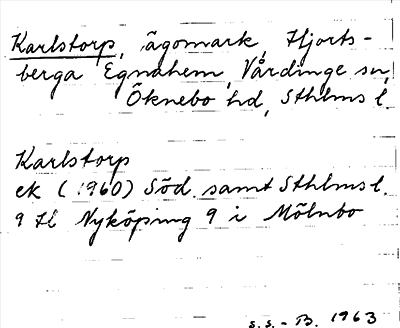 Karlstorp, ägomark, Hjorts-
berga Egnahem, Vårdinge sn,
Öknebo hd, Sthlms l.
Karlstorp
ek (1960) Söd. samt Sthlms l.
9 Nyköping 9 i Mölnbo
S.S.-B. 1963